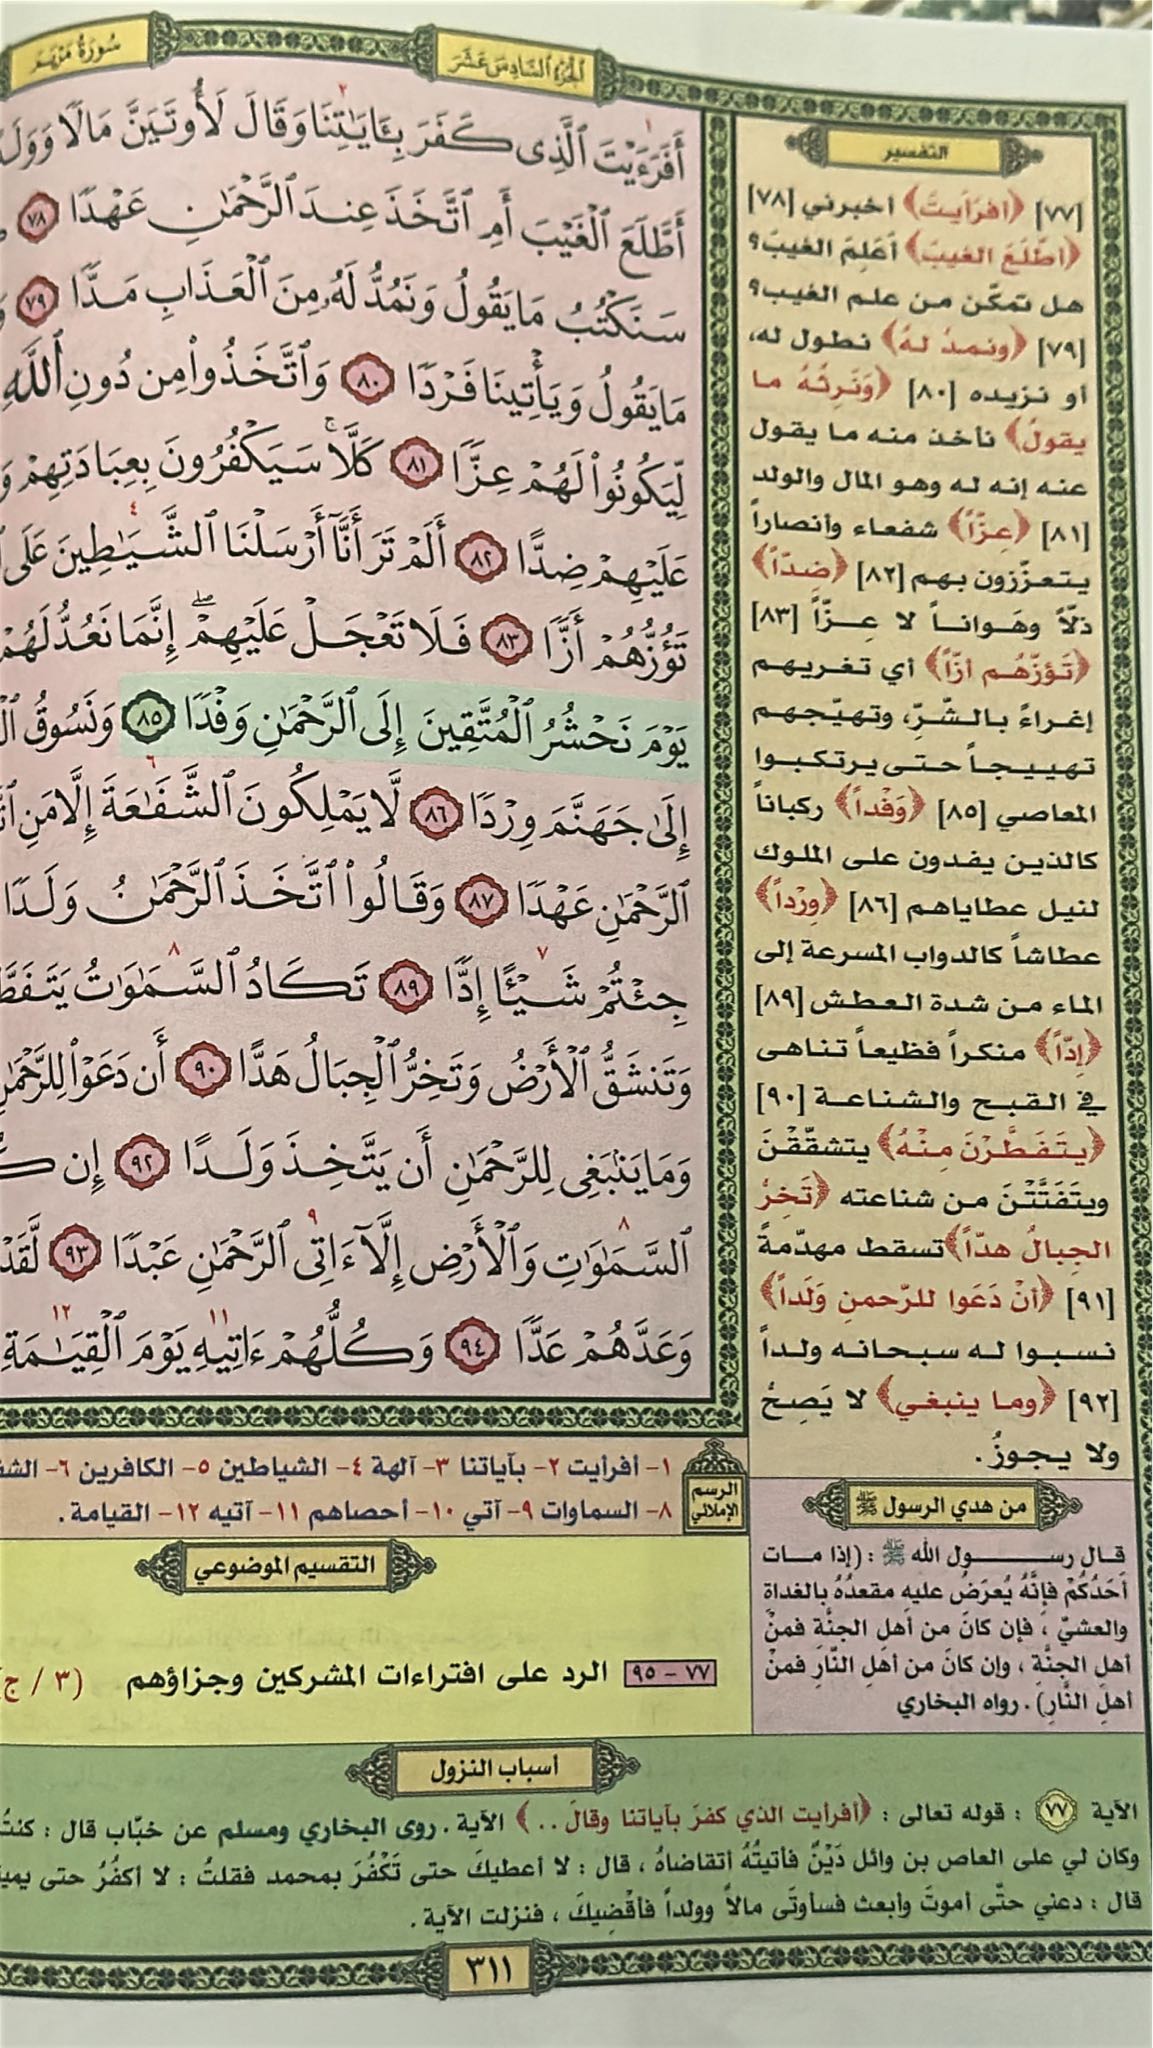 الجزء السادس عشر
سورة مريم
أَفَرَءَيْتَ ٱلَّذِى كَفَرَ بِـَٔايَٰتِنَا وَقَالَ لَأُوتَيَنَّ مَالًا وَوَلَدًا
أَطَّلَعَ ٱلْغَيْبَ أَمِ ٱتَّخَذَ عِندَ ٱلرَّحْمَٰنِ عَهْدًا ٧٨
سَنَكْتُبُ مَا يَقُولُ وَنَمُدُّ لَهُۥ مِنَ ٱلْعَذَابِ مَدًّا ٧٩
مَا يَقُولُ وَيَأْتِينَا فَرْدًا ٨٠ وَٱتَّخَذُوا۟ مِن دُونِ ٱللَّهِ
لِّيَكُونُوا۟ لَهُمْ عِزًّا ٨١ كَلَّا ۚ سَيَكْفُرُونَ بِعِبَادَتِهِمْ
عَلَيْهِمْ ضِدًّا ٨٢ أَلَمْ تَرَ أَنَّآ أَرْسَلْنَا ٱلشَّيَٰطِينَ عَلَى
تَؤُزُّهُمْ أَزًّا ٨٣ فَلَا تَعْجَلْ عَلَيْهِمْ ۖ إِنَّمَا نَعُدُّ لَهُمْ
يَوْمَ نَحْشُرُ ٱلْمُتَّقِينَ إِلَى ٱلرَّحْمَٰنِ وَفْدًا ٨٥ وَنَسُوقُ
إِلَىٰ جَهَنَّمَ وِرْدًا ٨٦ لَّا يَمْلِكُونَ ٱلشَّفَٰعَةَ إِلَّا مَنِ
ٱلرَّحْمَٰنِ عَهْدًا ٨٧ وَقَالُوا۟ ٱتَّخَذَ ٱلرَّحْمَٰنُ وَلَدًا
جِئْتُمْ شَيْـًٔا إِدًّا ٨٩ تَكَادُ ٱلسَّمَٰوَٰتُ
وَتَنشَقُّ ٱلْأَرْضُ وَتَخِرُّ ٱلْجِبَالُ هَدًّا ٩٠ أَن دَعَوْا۟ لِلرَّحْمَٰنِ
وَمَا يَنۢبَغِى لِلرَّحْمَٰنِ أَن يَتَّخِذَ وَلَدًا ٩٢ إِن
ٱلسَّمَٰوَٰتِ وَٱلْأَرْضِ إِلَّآ ءَاتِى ٱلرَّحْمَٰنِ عَبْدًا ٩٣ لَّقَدْ
وَعَدَّهُمْ عَدًّا ٩٤ وَكُلُّهُمْ ءَاتِيهِ يَوْمَ ٱلْقِيَٰمَةِ
التفسير
[٧٧] ﴿أفرأيتَ﴾ أخبرني [٧٨]
﴿اطّلَعَ الغيبَ﴾ أعَلِمَ الغيبَ؟
هل تمكّن من علم الغيب؟
[٧٩] ﴿ونمدُ لهُ﴾ نطول له،
أو نزيده [٨٠] ﴿وَنَرِثُهُ ما
يقولُ﴾ نأخذ منه ما يقول
عنه إنه له وهو المال والولد
[٨١] ﴿عِزّاً﴾ شفعاء وأنصاراً
يتعزّزون بهم [٨٢] ﴿ضِدّاً﴾
ذلّاً وهَواناً لا عِزّاً [٨٣]
﴿تَؤزّهُم أزّاً﴾ أي تغريهم
إغراءً بالشّرّ، وتهيّجهم
تهييجاً حتى يرتكبوا
المعاصي [٨٥] ﴿وَفْداً﴾ ركباناً
كالذين يفدون على الملوك
لنيل عطاياهم [٨٦] ﴿وِرْداً﴾
عطاشاً كالدواب المسرعة إلى
الماء من شدة العطش [٨٩]
﴿إدّاً﴾ منكراً فظيعاً تناهى
في القبح والشناعة [٩٠]
﴿يتفَطَّرْنَ مِنْهُ﴾ يتشقّقْنَ
ويتَفَتَّتْنَ من شناعته ﴿تَخِرُّ
الجِبالُ هدّاً﴾ تسقط مهدّمةً
[٩١] ﴿أنْ دَعَوا للرّحمنِ وَلَداً﴾
نسبوا له سبحانه ولداً
[٩٢] ﴿وما ينبغي﴾ لا يَصِحُّ
ولا يجوزُ.
الرسم الإملائي
١- أفرأيت ٢- بآياتنا ٣- آلهة ٤- الشياطين ٥- الكافرين ٦-
٨- السماوات ٩- آتي ١٠- أحصاهم ١١- آتيه ١٢- القيامة.
من هدي الرسول ﷺ
قال رسول الله ﷺ : (إذا مات
أحَدُكُمْ فإنَّهُ يُعرَضُ عليهِ مقعدُهُ بالغداة
والعشيِّ ، فإن كانَ من أهلِ الجنَّةِ فمنْ
أهلِ الجنَّةِ ، وإن كانَ من أهلِ النَّارِ فمنْ
أهلِ النَّارِ) . رواه البخاري
التقسيم الموضوعي
٧٧ - ٩٥ الرد على افتراءات المشركين وجزاؤهم (٣ / ج)
أسباب النزول
الآية ٧٧ : قوله تعالى : ﴿أفرأيت الذي كفرَ بآياتنا وقالَ ..﴾ الآية . روى البخاري ومسلم عن خبّاب قال : كنتُ
وكان لي على العاص بن وائل دَيْنٌ فأتيتُهُ أتقاضاهُ ، قال : لا أعطيكَ حتى تَكْفُرَ بمحمد فقلتُ : لا أكفُرُ حتى
قال : دعني حتّى أموتَ وأبعث فسأوتَى مالاً وولداً فأقْضِيكَ ، فنزلت الآية .
٣١١